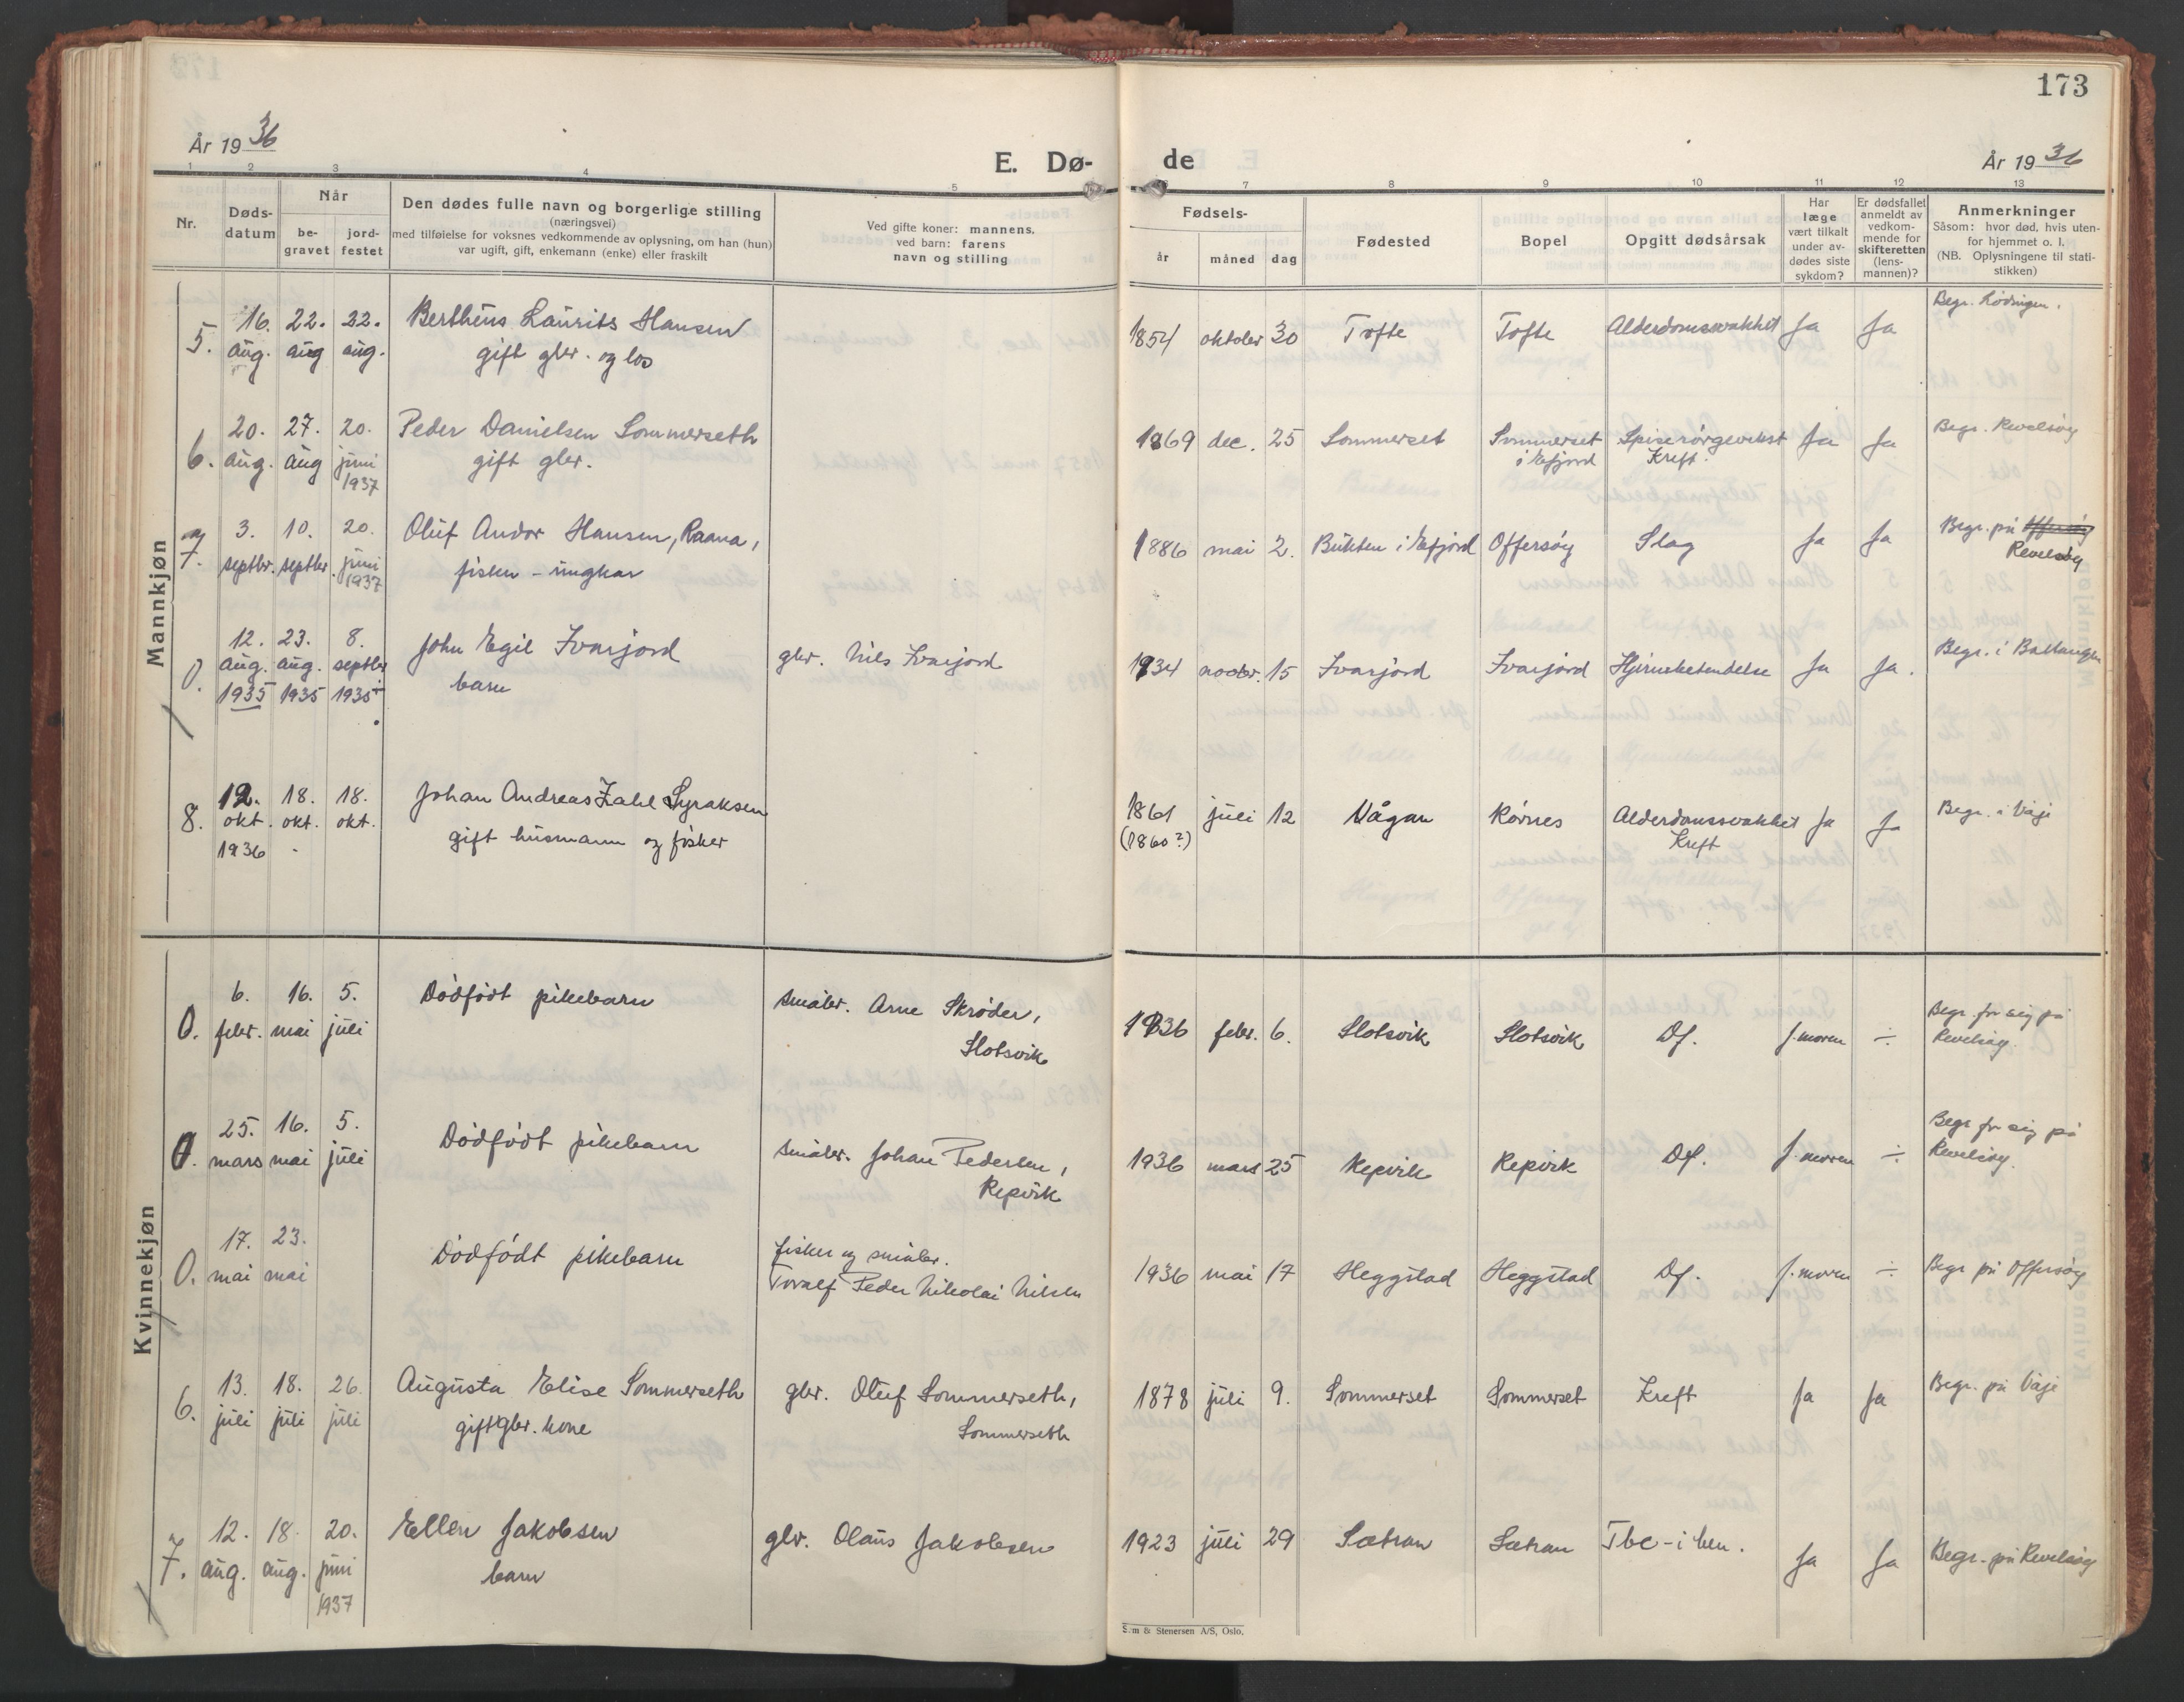 173
År 1936
E. Dø- de
År 1936
1 2 3 4 5 6 7 8 9 10 11 12 13
Nr.
Døds-
datum
Når
be-
gravet
jord-
festet
Den dødes fulle navn og borgerlige stilling
(næringsvei)
med tilføielse for voksnes vedkommende av oplysning, om han (hun)
var ugift, gift, enkemann (enke) eller fraskilt
Ved gifte koner: mannens,
ved barn: farens
navn og stilling
Fødsels-
år måned dag
Fødested
Bopel
Opgitt dødsårsak
Har
læge
vært tilkalt
under av-
dødes siste
sykdom?
Er dødsfallet
anmeldt av
vedkom-
mende for
skifteretten
(lens-
mannen)?
Anmerkninger
Såsom: hvor død, hvis uten-
for hjemmet o. l.
(NB. Oplysningene til stati-
stikken)
Mannkjøn
Begr. Lødingen.
5. 16. 22. 22. Bertheus Laurits Hansen 1854 oktober 30 Tofte Tofte Alderdomssvakhet Ja Ja
aug. aug aug. gift gbr. og los
6. 20. 27. 20. Peder Danielsen Sommerseth 1869 dec. 25 Sommerset Sommerset Spiserørgevekst Ja Ja Begr. Revelsøy
aug. aug juni gift gbr. i Efjord Kreft.
1937
7. 3. 10. 20. Oluf Andor Hansen, Raana, 1886 mai 2. Bukten i Efjord Offersøy Slag Ja Ja Begr. på Offersøy
septbr. septbr. juni fisker - ungkar Revelsøy
1937
0. 12. 23. 8. John Egil Ivarjord gbr. Nils Ivarjord 1934 novbr. 15 Ivarjord Ivarjord Hjernebetendelse Ja Ja. Begr. i Ballangen
aug. aug. septbr barn
1935 1935 1935
8. 12. 18. 18. Johan Andreas Zahl Syraksen 1861 juli 12 Vågan Rørnes Alderdomssvakhet Ja Ja Begr. i Våje
okt. okt. okt. gift husmann og fisker (1860?) Kreft
1936
Kvinnekjøn
0. 6. 16. 5. Dødfødt pikebarn småbr. Arne Skrøder, 1936 febr. 6. Slotsvik Slotsvik Df. j. moren ÷ Begr. for sig på
febr. mai juli Slotsvik Revelsøy.
0. 25. 16. 5. Dødfødt pikebarn småbr. Johan Pedersen, 1936 mars 25 Repvik Repvik Df. j. moren ÷ Begr for sig på
mars mai juli Repvik Revelsøy.
0. 17. 23. Dødfødt pikebarn fisker og småbr. 1936 mai 17 Heggstad Heggstad Df. j. moren ÷ Begr på Offersøy
mai mai Toralf Peder Nikolai Nilsen
6. 13. 18. 26. Augusta Elise Sommerseth gbr. Oluf Sommerseth, 1878 juli 9. Sommerset Sommerset Kreft Ja Ja Begr. på Våje
juli juli juli gift gbr. kone Sommerseth
7. 12. 18. 20. Ellen Jakobsen gbr. Olaus Jakobsen 1923 juli 29 Sætran Sætran Tbc - i ben. Ja Ja Begr. på Revelsøy
aug. aug. juni barn
1937
Sem & Stenersen A/S, Oslo.